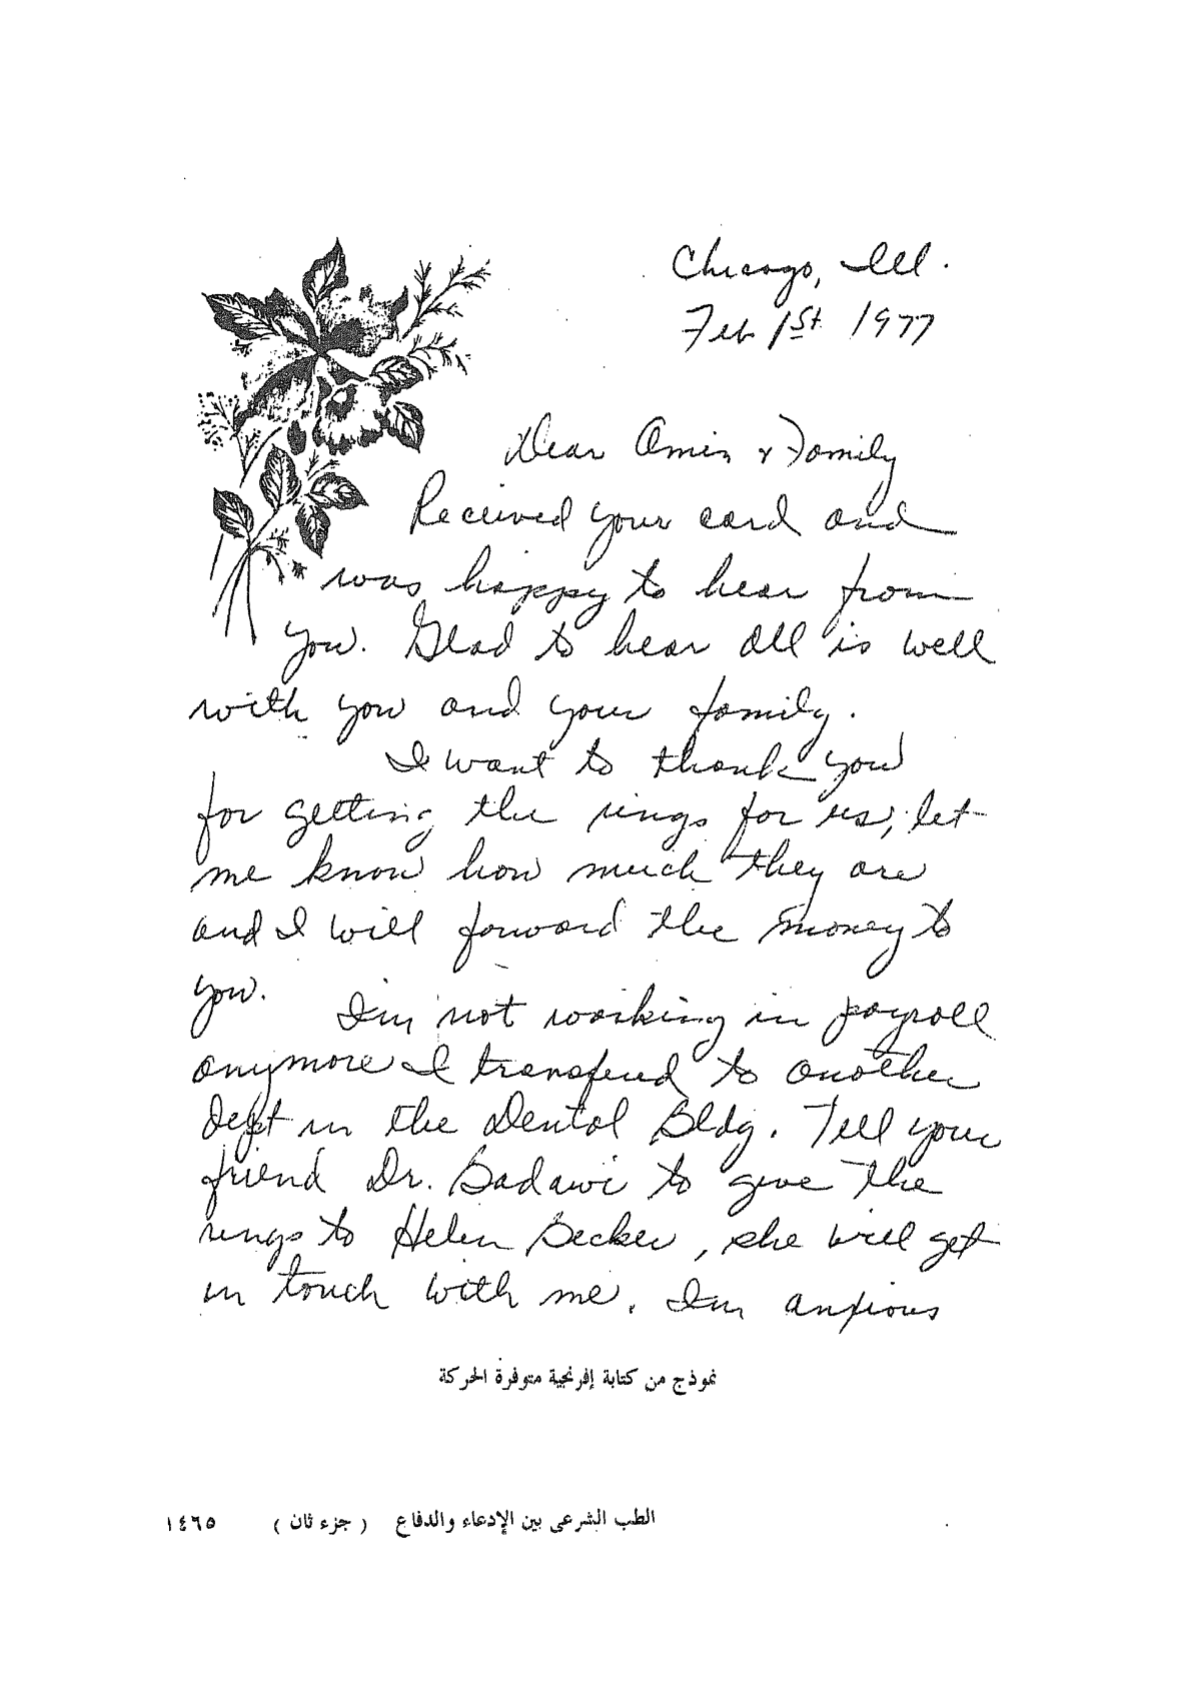 Chicago, Ill.
Feb 1st 1977
Dear Amin & Family
Received your card and
was happy to hear from
you. Glad to hear all is well
with you and your family.
I want to thank you
for getting the rings for us, let
me know how much they are
and I will forward the money to
you.
I'm not working in payroll
anymore I transfered to another
dept in the Dental Bldg. Tell your
friend Dr. Badawi to give the
rings to Helen Becker, she will get
in touch with me. I'm anxious
نموذج من كتابة إفرنجية متوفرة الحركة
الطب الشرعى بين الإدعاء والدفاع ( جزء ثان ) ١٤٦٥